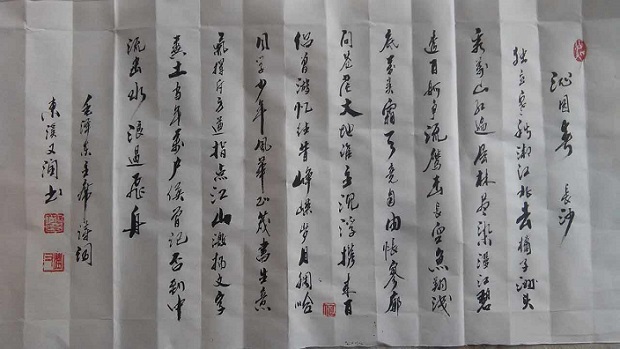 沁园春 长沙
独立寒秋湘江北去橘子洲头
看万山红遍层林尽染漫江碧
透百舸争流鹰击长空鱼翔浅
底万类霜天竞自由怅寥廓
问苍茫大地谁主沉浮携来百
侣曾游忆往昔峥嵘岁月稠恰
同学少年风华正茂书生意
气挥斥方遒指点江山激扬文字
粪土当年万户侯曾记否到中
流击水浪遏飞舟
毛泽东主席诗词
东溪又润书